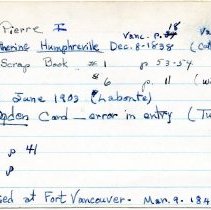 Pierre I
Vanc. p. 18 Va
therine Humphreville Dec. 8-1838 (Cat
Scrap Book #1 p 53-54
#6 p. 11 (wi
June 1903 (Labonte)
gden Card - error in entry (Tu
p 41
p
ied at Fort Vancouver. Mar. 9. 184